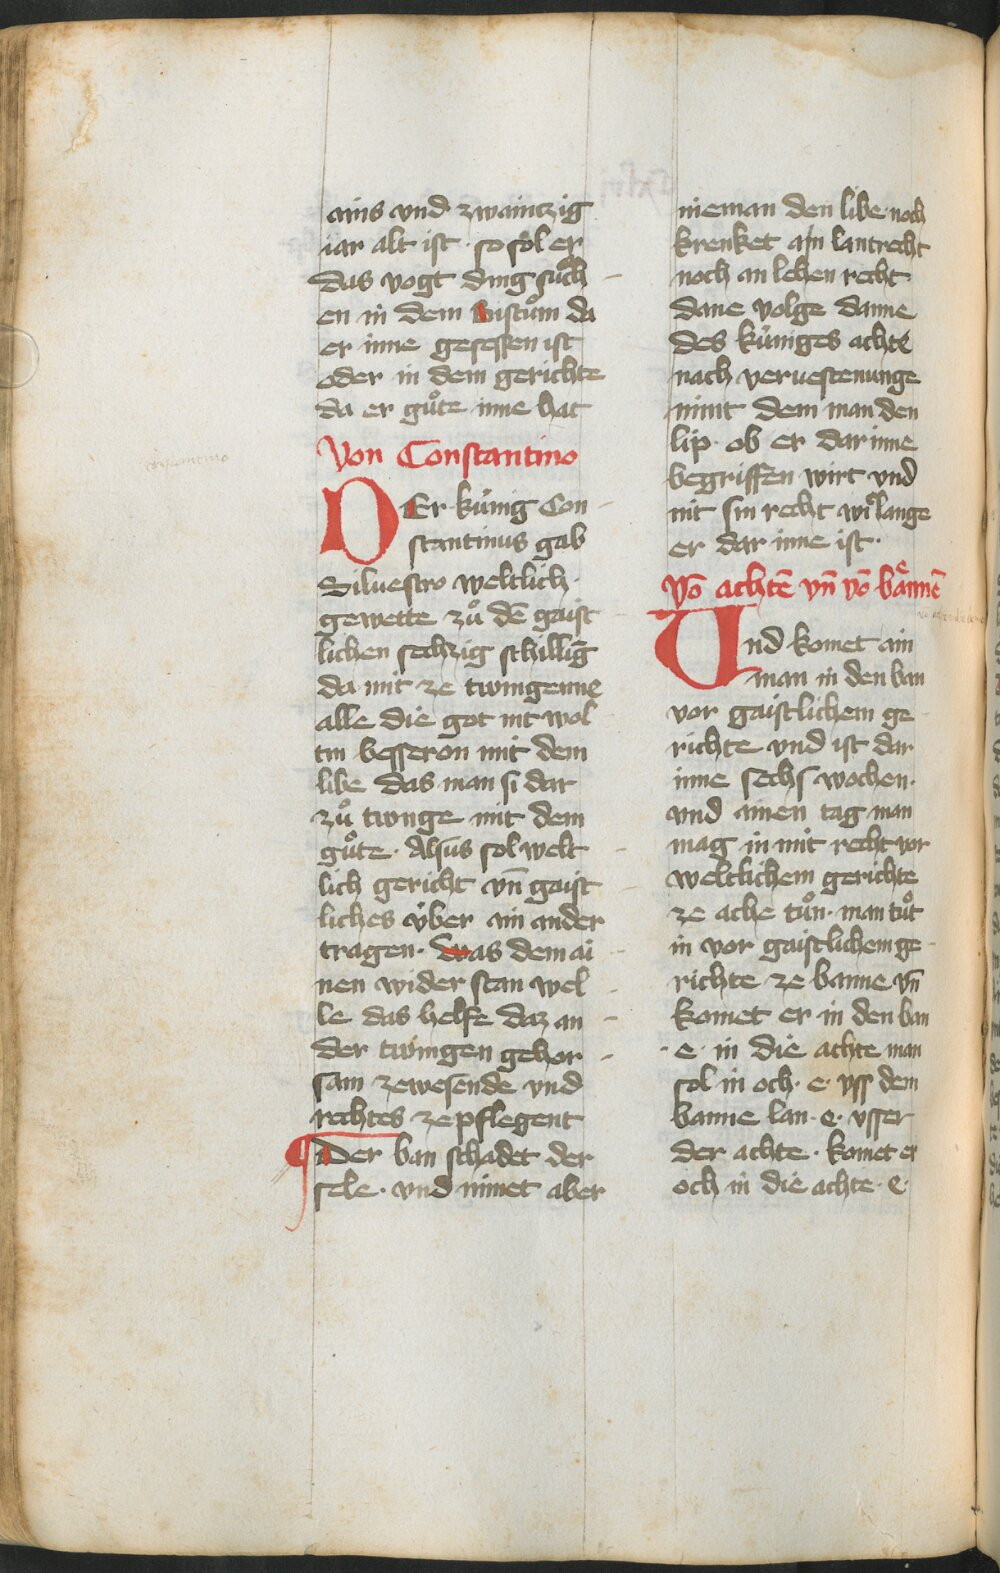 ains vnd zwaintzig
iar alt ist · so sol er
das vogt ding sůch
en in dem bistům da
er inne gesessen ist
oder in dem gerichte
da er gůte inne hat
Von Constantino
DEr kúnig Con
stantinus gab
Siluestro weltlich ·
gewette zů dē gaist
lichen sechzig schillīg
da mit ze twingenne
alle die got nit wol
tin besseron mit dem
libe das man si dar
zů twnge mit dem
gůte · Alsus sol welt
lich gericht vn̄ gaist
liches v́ber ain ander
tragen · was dem ai
nen wider stan wel
le das helfe daz an
der twingen gehor
sam zewesende vnd
rechtes ze pflegent
¶ Der ban schadet der
sele · vnd nimet aber
nieman den libe noch
krenket an lantrecht
noch an lehen recht
dane volge danne
des kúniges achte
nach veruestenunge
nimt dem man den
lip · ob er dar inne
begriffen wirt vnd
nit sin recht wie lange
er dar inne ist ·
Vō achtē vn̄ vō bännē
Vnd komet ain
man in den ban
vor gaistlichem ge
richte vnd ist dar
inne sechs wochen ·
vnd ainen tag man
mag in mit recht vor
weltlichem gerichte
ze ache tůn · man tůt
in vor gaistlichem ge
richte ze banne vn̄
komet er in den ban
· e · in die achte man
sol in och · e · vss dem
banne lan · e · vsser
der achte · komet er
och in die achte · e ·